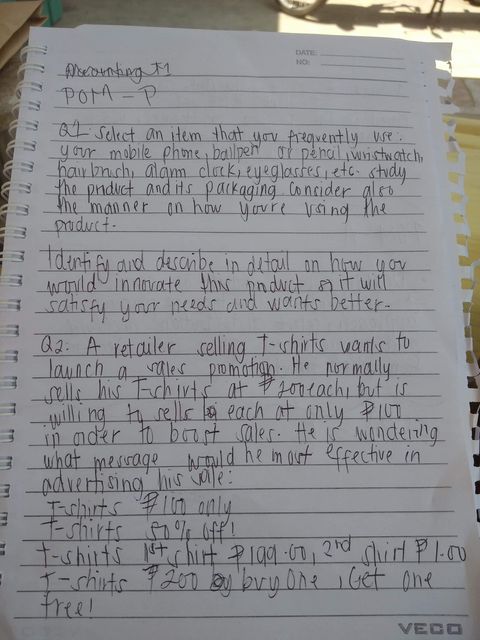 DATE:
NO:
Accounting #1
POM - P
Q1 Select an item that you frequently use:
your mobile phone, ballpen or pencil, wristwatch,
hairbrush, alarm clock, eyeglasses, etc. study
the product and its packaging. Consider also
the manner on how youre using the
product.
Identify and describe in detail on how you
would innovate this product so it will
satisfy your needs and wants better.
Q2: A retailer selling T-shirts wants to
launch a sales promotion. He normally
sells his T-shirts at ₱200 each, but is
willing to sells each at only ₱100
in order to boost sales. He is wondering
what message would he most effective in
advertising his sale:
T-shirts ₱100 only
T-shirts 50% off!
T-shirts 1st shirt ₱199.00, 2nd shirt ₱1.00
T-shirts ₱200 buy one, Get one
free!
VECO